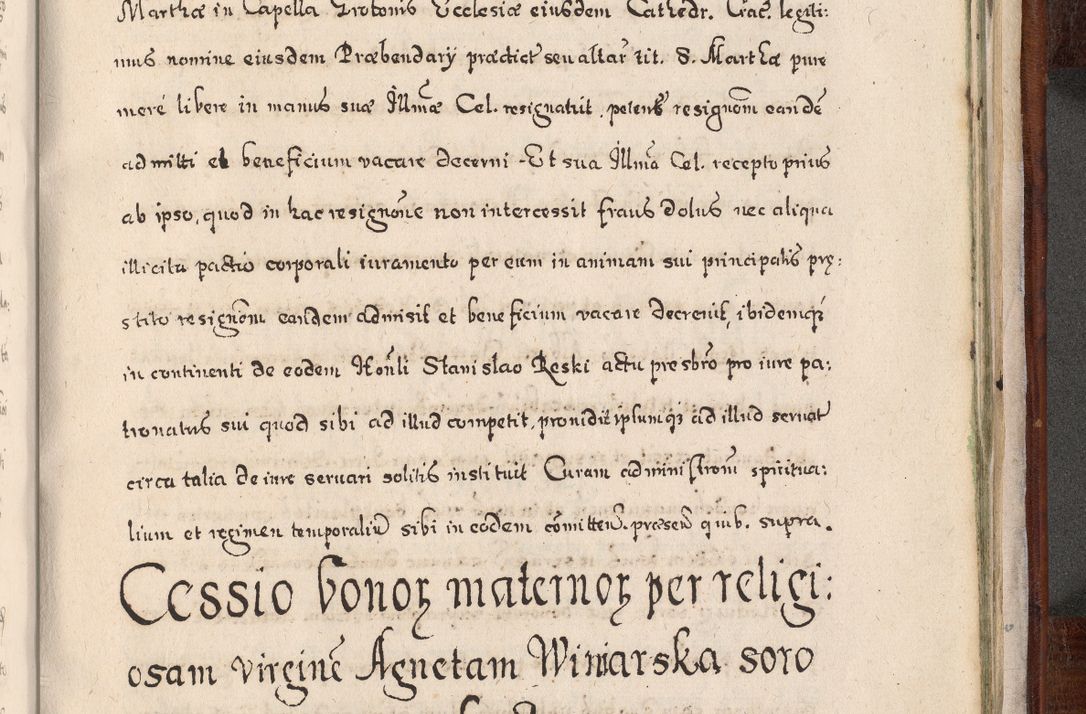 Marthæ in Capella Trotonis Ecclesiæ eiusdem Cathedr. Crac. legiti:
mus nomine eiusdem Præbendarÿ prædict seu altar tit. S. Marthæ pure
mere libere in manus suæ Illmæ Cel. resignatut, petens resignom eandē
admitti et beneficium vacare decerni - Et sua Illma Cel. recepto prius
ab ipso, quod in hac resignone non intercessit fraus dolus nec aliqua
illicita pactio corporali iuramento per eum in animam sui principalis pre:
stito resignom eandem admisit et beneficium vacare decrenit, ibidemqȝ
in continenti de eodem Honli Stanislao Reski actu presbro pro iure pa:
tronatus sui quod sibi ad illud competit, prouidit ipsumqȝ ad illud seruat
circa talia de iure seruari solitis instituit Curam administrom spiritua:
lium et regimen temporaliū sibi in eodem comitten. præsen quib. supra.
Cessio bonoꝝ maternoꝝ per religi:
osam virginē Agnetam Winiarska soro